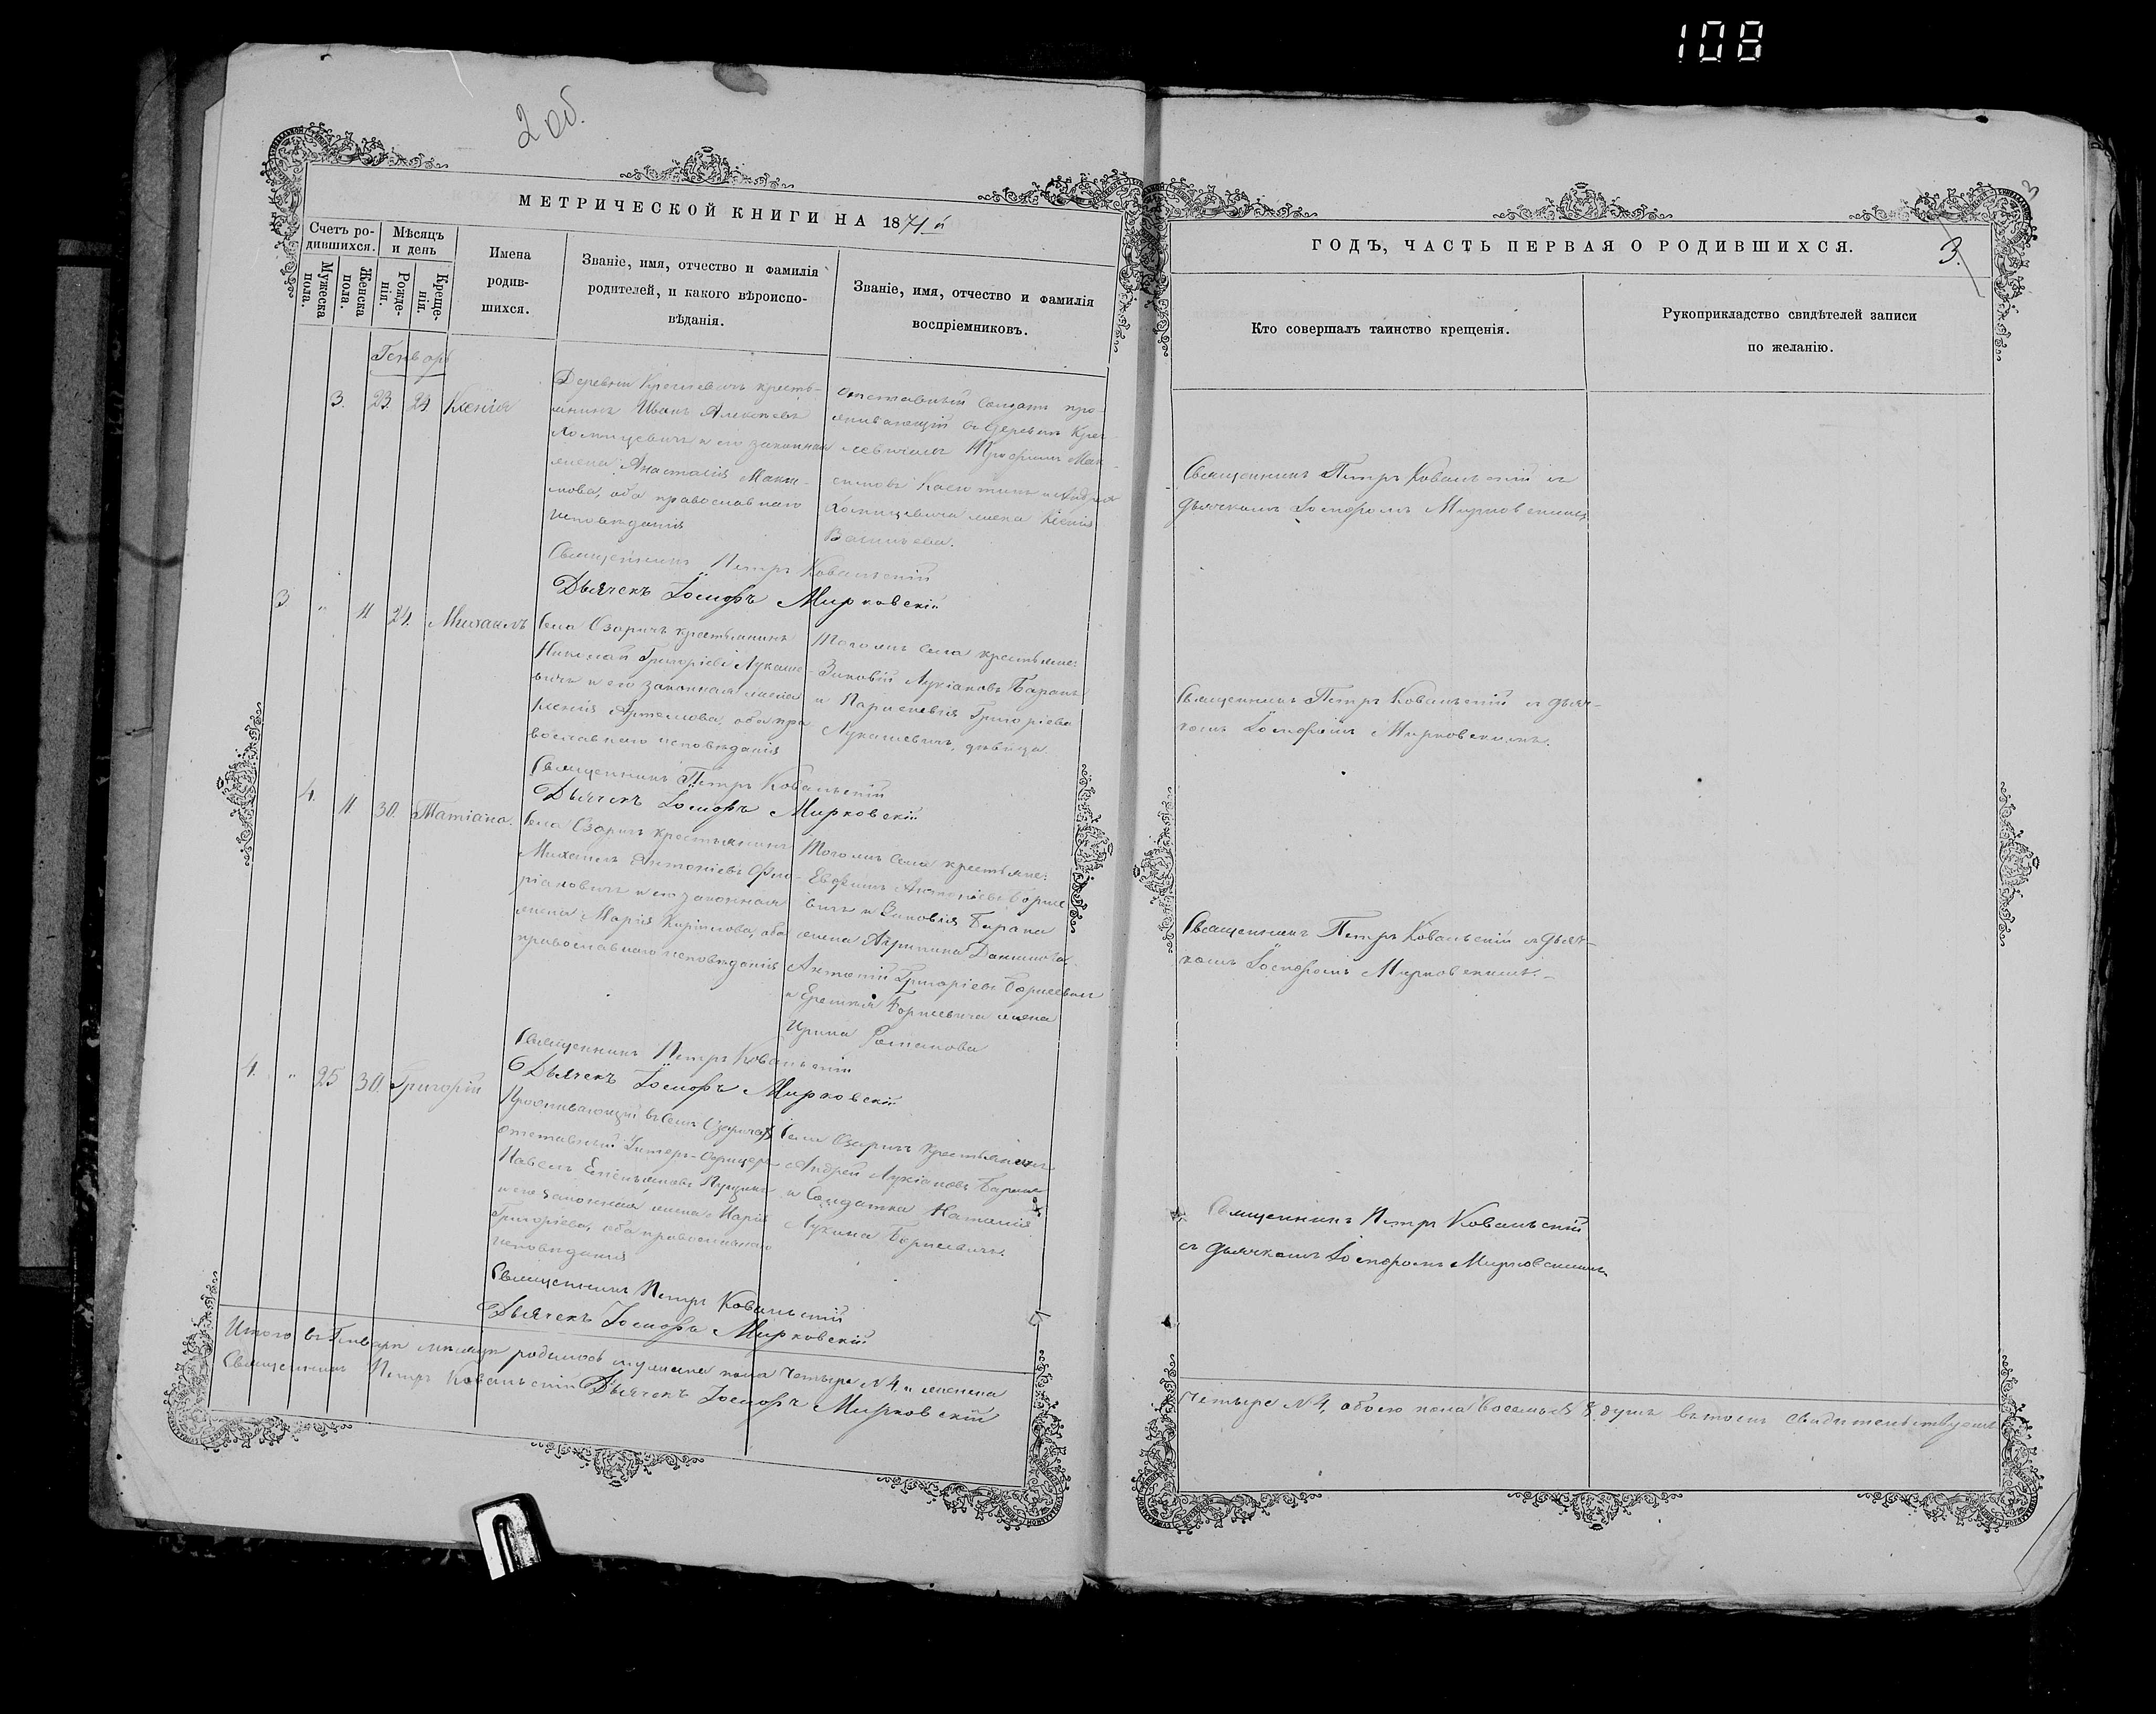 108
2 об.
МЕТРИЧЕСКОЙ КНИГИ НА 1871 й
Счетъ ро-
дившихся.
Мужеска
пола.
Женска
пола.
Мѣсяцъ
и день
Рожде-
нія.
Креще-
нія.
Имена
родив-
шихся.
Званіе, имя, отчество и фамилія
родителей, и какого вѣроиспо-
вѣданія.
Званіе, имя, отчество и фамилія
воспріемниковъ.
Генварь
3. 23. 24 Ксенія
Деревни крестья-
нинъ Иванъ Алексѣевъ
и его законная
жена Анастасія Макси-
мова, оба православнаго
исповѣданія
отставный солдатъ про-
живающій въ деревнѣ
Мак-
симовъ и Андрея
жена Ксенія
Васильева.
Священникъ Петръ Ковальскій
Дьячекъ Іосифъ Мирковскій
3 " 11 24. Михаилъ
Села Озаричъ крестьянинъ
Николай Григоріевъ Лукаше-
вичъ и его законная жена
Ксенія Артемова, оба пра
вославнаго исповѣданія
Тогожъ села крестьяне:
Зиновій Лукіановъ Баранъ
и Параскевія Григоріева
Лукашевичъ, дѣвица
Священникъ Петръ Ковальскій
Дьячекъ Іосифъ Мирковскій
4. 11 30. Татіана.
Села Озаричъ крестьянинъ
Михаилъ Антоніевъ Фло-
ріановичъ и его законная
жена Марія Кирилова, оба
православнаго исповѣданія
Тогожъ села крестьяне:
Евфимъ Антоніевъ Борисе
вичъ и Зиновія Барана
жена Агрипина Данилова.
Антоній Григоріевъ Борисевичъ
и Еремія Борисевича жена
Ирина Романова
Священникъ Петръ Ковальскій
Дьячекъ Іосифъ Мирковскій
4. " 25 30. Григорій
Проживающій въ селѣ Озаричахъ
отставный Унтеръ-Офицеръ
Павелъ Емельяновъ
и его законная жена Марія
Григоріева, оба православнаго
исповѣданія
Села Озаричъ крестьянинъ
Андрей Лукіановъ Баранъ
и Солдатка Наталія
Лукина Борисевичъ.
Священникъ Петръ Ковальскій
Дьячекъ Іосифъ Мирковскій
Итого въ Генварѣ мѣсяцѣ родилось мужеска пола четыре N 4, и женска
Священникъ Петръ Ковальскій Дьячекъ Іосифъ Мирковскій
3
ГОДЪ, ЧАСТЬ ПЕРВАЯ О РОДИВШИХСЯ.
3.
Кто совершалъ таинство крещенія.
Рукоприкладство свидѣтелей записи
по желанію.
Священникъ Петръ Ковальскій съ
дьячкомъ Іосифомъ Мирковскимъ
Священникъ Петръ Ковальскій съ дьяч-
комъ Іосифомъ Мирковскимъ.
Священникъ Петръ Ковальскій съ дьяч-
комъ Іосифомъ Мирковскимъ.-
Священникъ Петръ Ковальскій
съ дьячкомъ Іосифомъ Мирковскимъ
четыре N 4, обоего пола восемь N 8 душъ въ томъ свидетельствуемъ